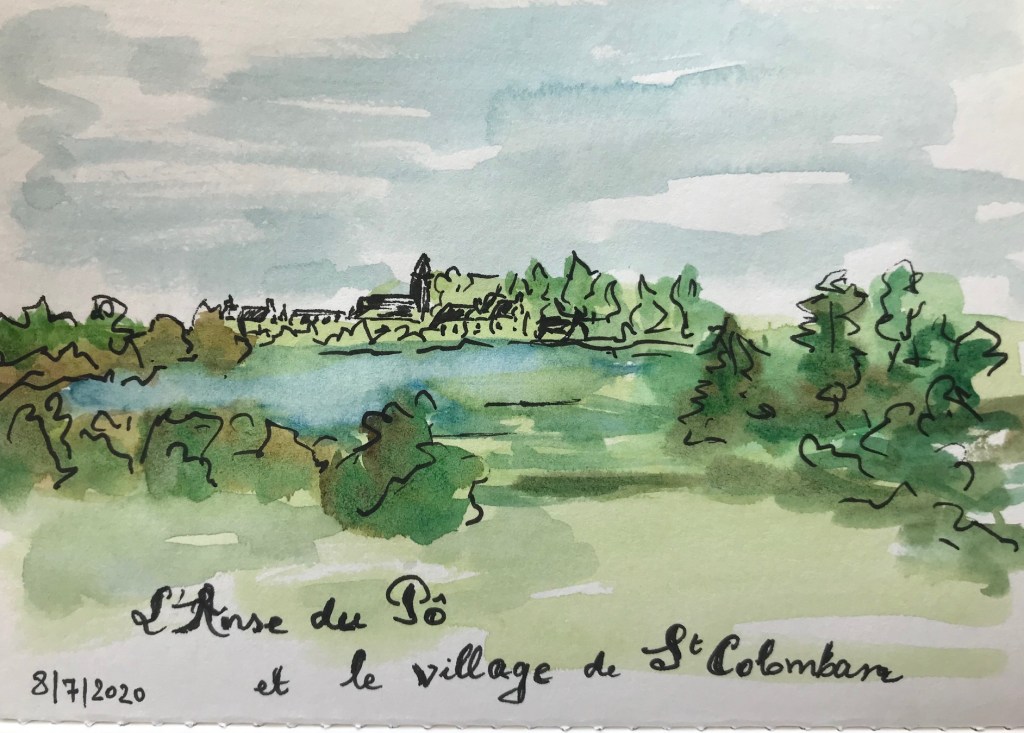 L'Anse du Pô
et le village de St Colomban
8/7/2020